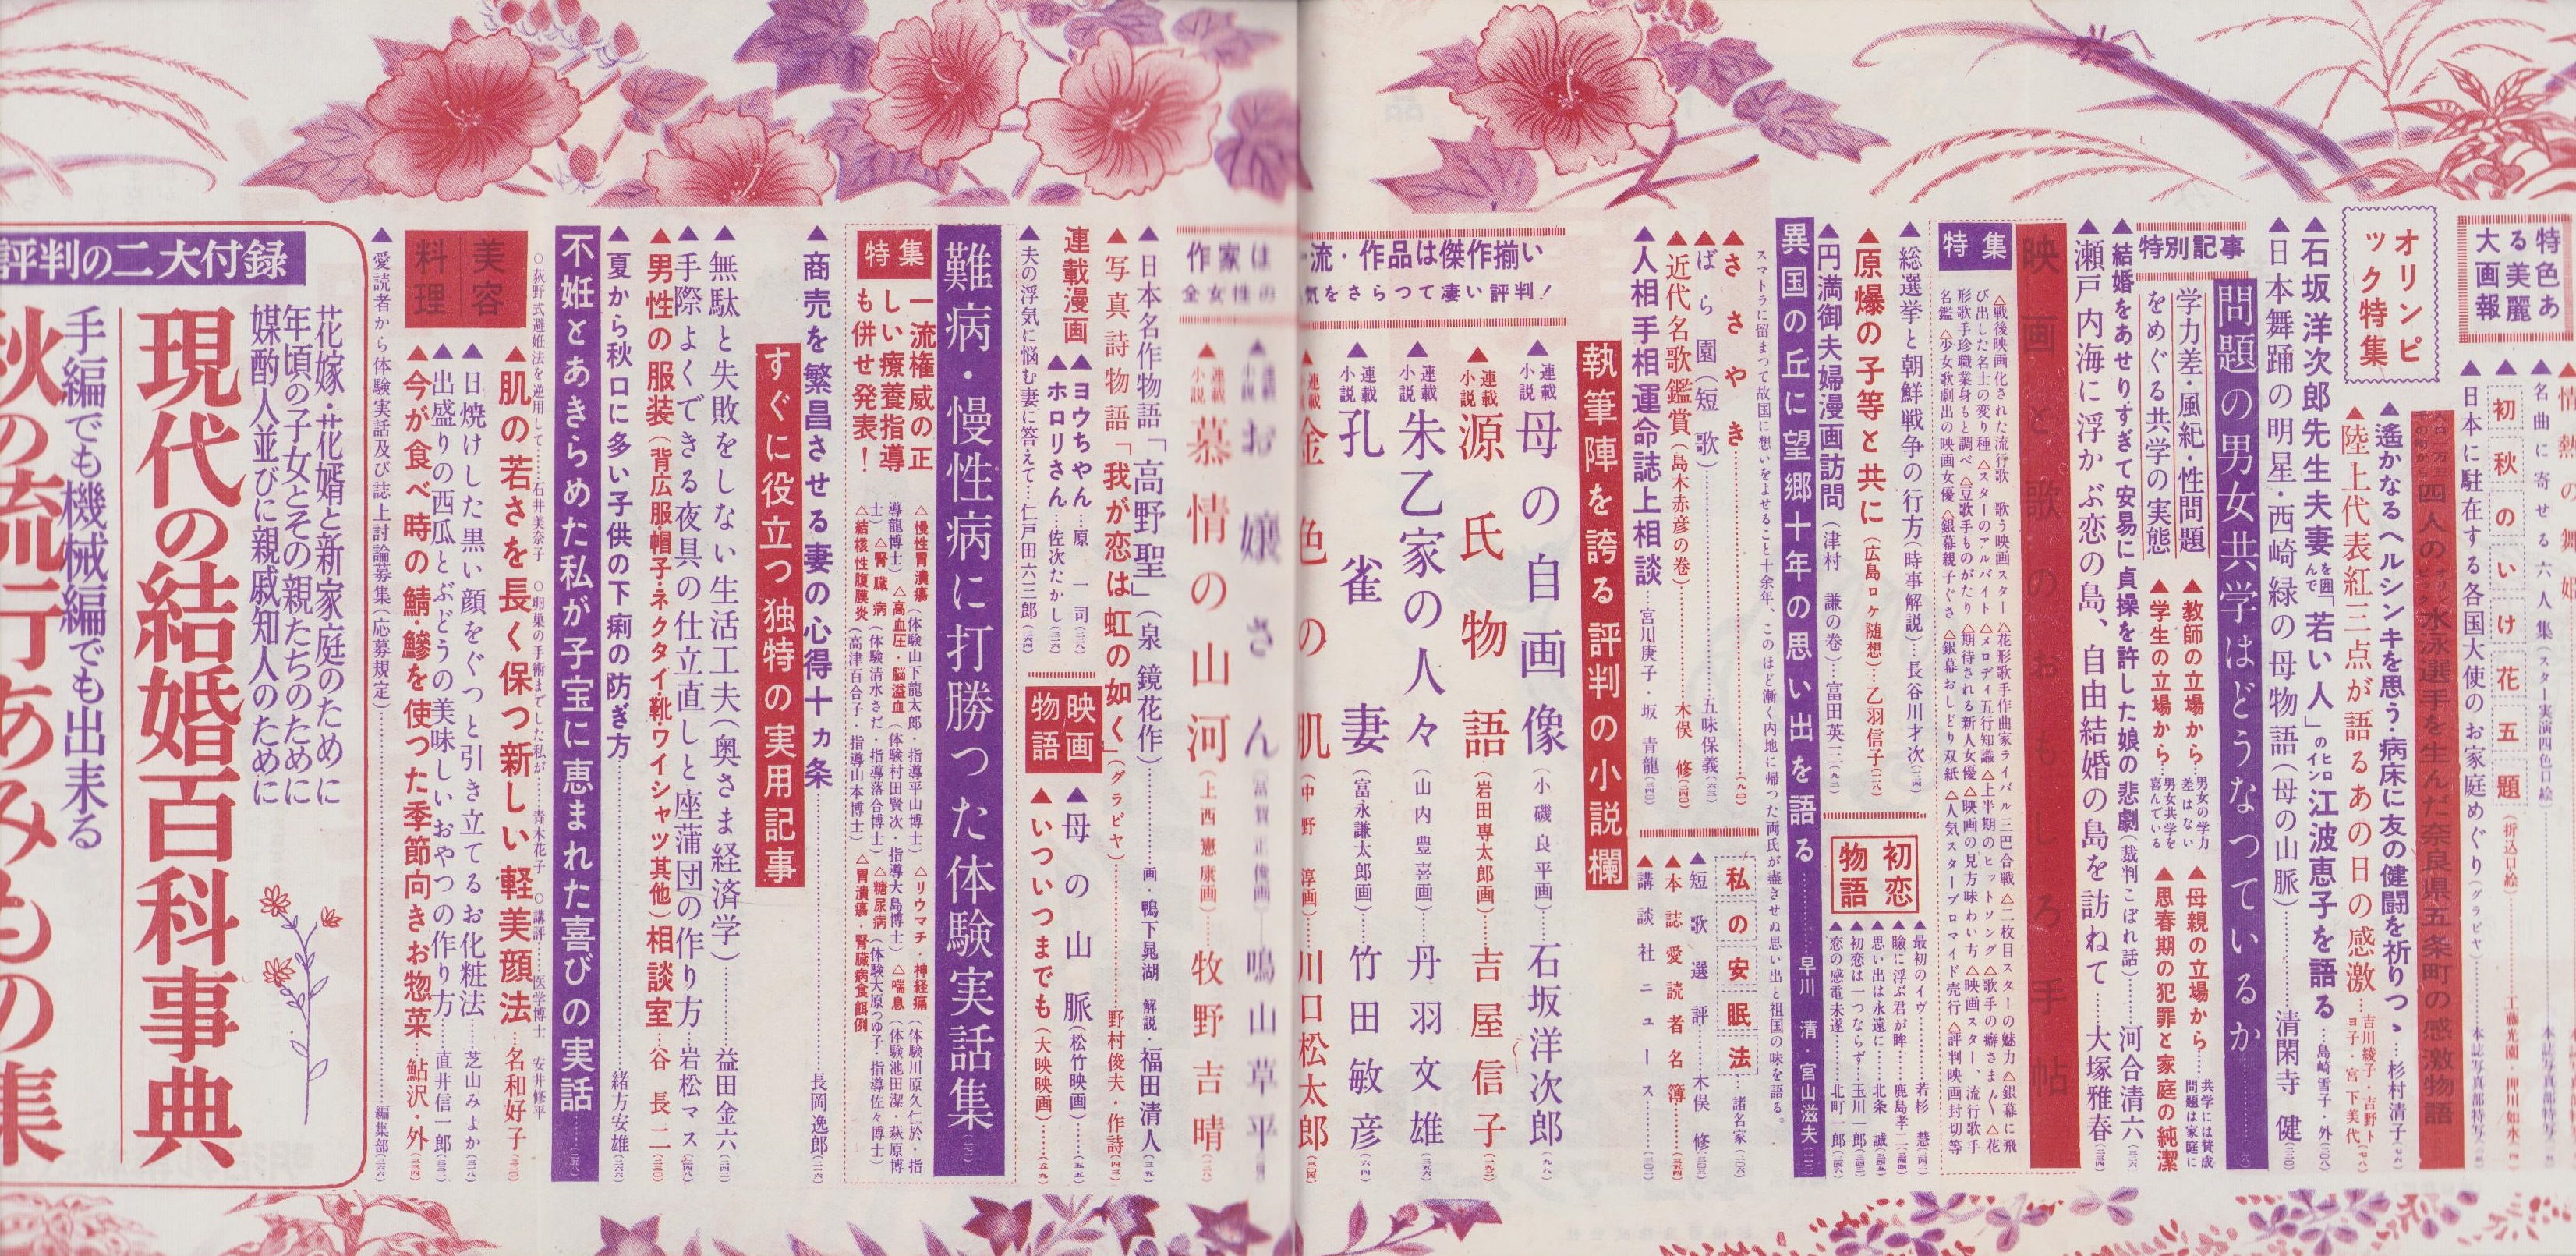 特色あ
る美麗
大画報
名曲に寄せる六人集（スター実演四色口絵）
初秋のいけ花五題（折込口絵）
日本に駐在する各国大使のお家庭めぐり（グラビヤ）
オリンピ
ック特集
四人のオリンピック水泳選手を生んだ奈良県五条町の感激物語
▲遙かなるヘルシンキを思う・病床に友の健闘を祈りつゝ…杉村清子
▲陸上代表紅三点が語るあの日の感激…吉川綾子・吉野トヨ子・宮下美代
▲石坂洋次郎先生夫妻を囲んで「若い人」のヒロイン江波恵子を語る…島崎雪子・外
▲日本舞踊の明星・西崎緑の母物語（母の山脈）…清閑寺 健
特別記事
問題の男女共学はどうなつているか
学力差・風紀・性問題
をめぐる共学の実態
▲教師の立場から…男女の学力差はない
▲学生の立場から…男女共学を喜んでいる
▲母親の立場から…共学には賛成問題は家庭に
▲思春期の犯罪と家庭の純潔
▲結婚をあせりすぎて安易に貞操を許した娘の悲劇（裁判こぼれ話）…河合清六
▲瀬戸内海に浮かぶ恋の島、自由結婚の島を訪ねて…大塚雅春
映画と歌のおもしろ手帖
特集
△戦後映画化された流行歌 歌う映画スター △花形歌手作曲家ライバル三巴合戦 △二枚目スターの魅力 △銀幕に飛
び出した名士の変り種 △スターのアルバイト △メロディ五行知識 △上半期のヒットソング △歌手の癖さまざま △花
形歌手珍職業身もと調べ △豆歌手ものがたり △期待される新人女優 △映画の見方味わい方 △映画スター、流行歌手
名鑑 △少女歌劇出の映画女優 △銀幕親子ぐさ △銀幕おしどり双紙 △人気スターブロマイド売行 △評判映画封切等
▲総選挙と朝鮮戦争の行方（時事解説）…長谷川才次
▲原爆の子等と共に（広島ロケ随想）…乙羽信子
▲円満御夫婦漫画訪問（津村 謙の巻）…富田英三
初恋
物語
▲最初のイヴ…若杉 慧
▲瞼に浮ぶ君が眸…鹿島孝二
▲思い出は永遠に…北条 誠
▲初恋は一つならず…玉川一郎
▲恋の感電未遂…北町一郎
異国の丘に望郷十年の思い出を語る…早川 清・宮山滋夫
スマトラに留まつて故国に想いをよせること十余年、このほど漸く内地に帰つた両氏が尽きせぬ思い出と祖国の味を語る。
▲ささやき
▲ばら園（短歌）…五味保義
▲近代名歌鑑賞（島木赤彦の巻）…木俣 修
▲人相手相運命誌上相談…宮川庚子・坂 青龍
私の安眠法…諸名家
▲短歌選評…木俣 修
▲本誌愛読者名簿
▲講談社ニュース
執筆陣を誇る評判の小説欄
流・作品は傑作揃い
気をさらつて凄い評判！
▲連載小説 母の自画像（小磯良平画）…石坂洋次郎
▲連載小説 源氏物語（岩田専太郎画）…吉屋信子
▲連載小説 朱乙家の人々（山内豊喜画）…丹羽文雄
▲連載小説 孔雀妻（富永謙太郎画）…竹田敏彦
▲連載 金色の肌（中野 淳画）…川口松太郎
作家は
全女性の
お嬢さん…鳴山草平
▲連載小説 慕情の山河（上西憲康画）…牧野吉晴
▲日本名作物語「高野聖」（泉 鏡花作）…画・鴨下晁湖 解説・福田清人
▲写真詩物語「我が恋は虹の如く」（グラビヤ）…野村俊夫・作詩
連載漫画
▲ヨウちゃん…原 一司
▲ホロリさん…佐次たかし
映画
物語
▲母の山脈（松竹映画）
▲いついつまでも（大映映画）
▲夫の浮気に悩む妻に答えて…仁戸田六三郎
難病・慢性病に打勝つた体験実話集
特集
一流権威の正
しい療養指導
も併せ発表！
△慢性胃潰瘍（体験山下龍太郎・指導平山博士） △リウマチ・神経痛（体験川原久仁於・指
導龍博士） △高血圧・脳溢血（体験村田賢次・指導大島博士） △喘息（体験池田潔・萩原博
士） △腎臓病（体験清水さだ・指導落合博士） △糖尿病（体験大原つゆ子・指導佐々博士）
△結核性腹膜炎（高津百合子・指導山本博士） △胃潰瘍・腎臓病食餌例
▲商売を繁昌させる妻の心得十カ条…長岡逸郎
すぐに役立つ独特の実用記事
▲無駄と失敗をしない生活工夫（奥さま経済学）…益田金六
▲手際よくできる夜具の仕立直しと座蒲団の作り方…岩松マス
▲男性の服装（背広服・帽子・ネクタイ・靴・ワイシャツ其他）相談室…谷 長二
▲夏から秋口に多い子供の下痢の防ぎ方…緒方安雄
不妊とあきらめた私が子宝に恵まれた喜びの実話
○荻野式避妊法を逆用して…石井美奈子 ○卵巣の手術までした私が…青木花子 ○講評…医学博士 安井修平
美容
料理
▲肌の若さを長く保つ新しい軽美顔法…名和好子
▲日焼けした黒い顔をぐつと引き立てるお化粧法…芝山みよか
▲出盛りの西瓜とぶどうの美味しいおやつの作り方…直井信一郎
▲今が食べ時の鯖・鰺を使つた季節向きお惣菜…鮎沢・外
▲愛読者から体験実話及び誌上討論募集（応募規定）…編集部
評判の二大付録
花嫁・花婿と新家庭のために
年頃の子女とその親たちのために
媒酌人並びに親戚知人のために
現代の結婚百科事典
手編でも機械編でも出来る
秋の流行あみもの集